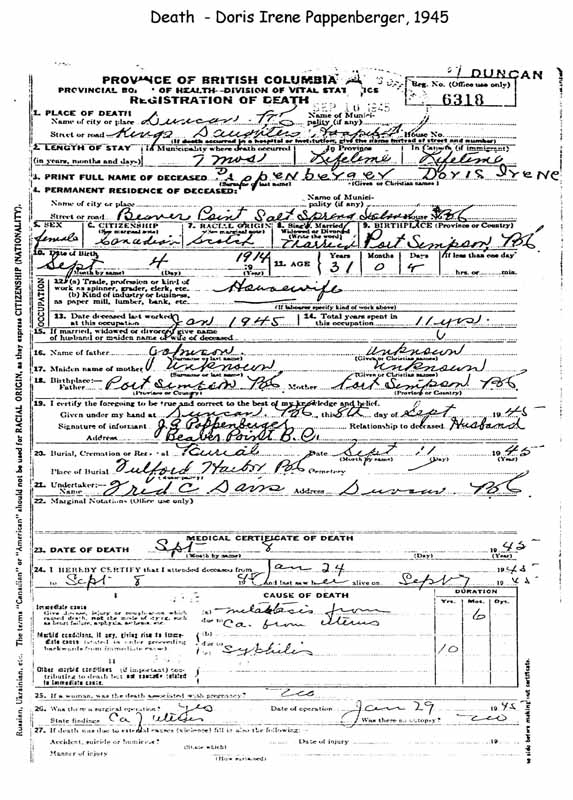 Death - Doris Irene Pappenberger, 1945
DUNCAN
PROVINCE OF BRITISH COLUMBIA
PROVINCIAL BO OF HEALTH—DIVISION OF VITAL STAT ICS
REGISTRATION OF DEATH
Reg. No. (Office use only)
6318
SEP 10 1945
1. PLACE OF DEATH
Name of city or place Duncan BC Name of Munici-
pality (if any)
Street or road Kings Daughters Hospital House No.
(If death occurred in a hospital or institution, give the name instead of street and number)
2. LENGTH OF STAY In Municipality where death occurred In Province In Canada (if immigrant)
(in years, months and days) 7 mos Lifetime Lifetime
3. PRINT FULL NAME OF DECEASED Pappenberger Doris Irene
(Surname or last name) (Given or Christian names)
4. PERMANENT RESIDENCE OF DECEASED:
Name of city or place Name of Munici-
pality (if any)
Street or road Beaver Point Salt Spring Island House No. BC
5. SEX 6. CITIZENSHIP 7. RACIAL ORIGIN 8. Single, Married, Widowed or Divorced 9. BIRTHPLACE (Province or Country)
(Write the word)
female Canadian Scotch Married Port Simpson BC
10. Date of Birth Sept 4 1914 11. AGE Years 31 Months 0 Days 4 If less than one day
(Month by name) (Day) (Year) hrs. or min.
OCCUPATION
12. (a) Trade, profession or kind of
work as spinner, grader, clerk, etc. Housewife
(b) Kind of industry or business,
as paper mill, lumber, bank, etc.
(If labourer specify kind of work above)
13. Date deceased last worked at this occupation Jan 1945 14. Total years spent in this occupation 11 yrs.
15. If married, widowed or divorced give name
of husband or maiden name of wife of deceased
16. Name of father Johnson Unknown
(Surname or last name) (Given or Christian names)
17. Maiden name of mother Unknown Unknown
(Surname or last name) (Given or Christian names)
18. Birthplace:— Father Port Simpson BC Mother Port Simpson BC
(Province or Country) (Province or Country)
19. I certify the foregoing to be true and correct to the best of my knowledge and belief.
Given under my hand at Duncan BC this 8th day of Sept 1945
Signature of informant J.G. Pappenberger Relationship to deceased Husband
Address Beaver Point B.C.
20. Burial, Cremation or Removal Burial Date Sept 11 1945
(Month by name) (Day) (Year)
Place of Burial Fulford Harbor BC Cemetery
21. Undertaker:—
Name Fred C Address Duncan BC
22. Marginal Notations (Office use only)
MEDICAL CERTIFICATE OF DEATH
23. DATE OF DEATH Sept 8 1945
(Month by name) (Day) (Year)
24. I HEREBY CERTIFY that I attended deceased from Jan 24 1945
to Sept 8 1945 and last saw her alive on Sept 7 1945
I CAUSE OF DEATH DURATION
Yrs. Mos. Dys.
Immediate cause
Give disease, injury or complication which
caused death, not the mode of dying, such
as heart failure, asphyxia, asthenia, etc.
(a) metastasis from 6
due to Ca. from uterus
Morbid conditions, if any, giving rise to imme-
diate cause (stated in order proceeding
backwards from immediate cause)
(b)
due to
(c) syphilis 10
II
Other morbid conditions (if important) con-
tributing to death but not causally related
to immediate cause.
25. If a woman, was the death associated with pregnancy? no
26. Was there a surgical operation? yes Date of operation Jan 29 1945
State findings Ca of uterus Was there an autopsy? no
27. If death was due to external causes (violence) fill in also the following:—
Accident, suicide or homicide? Date of injury 19
(State which)
Manner of injury
(How sustained)
The terms "Canadian" or "American" should not be used for RACIAL ORIGIN, as they express CITIZENSHIP (NATIONALITY).
Russian, Ukrainian, etc.
se side before making out certificate.